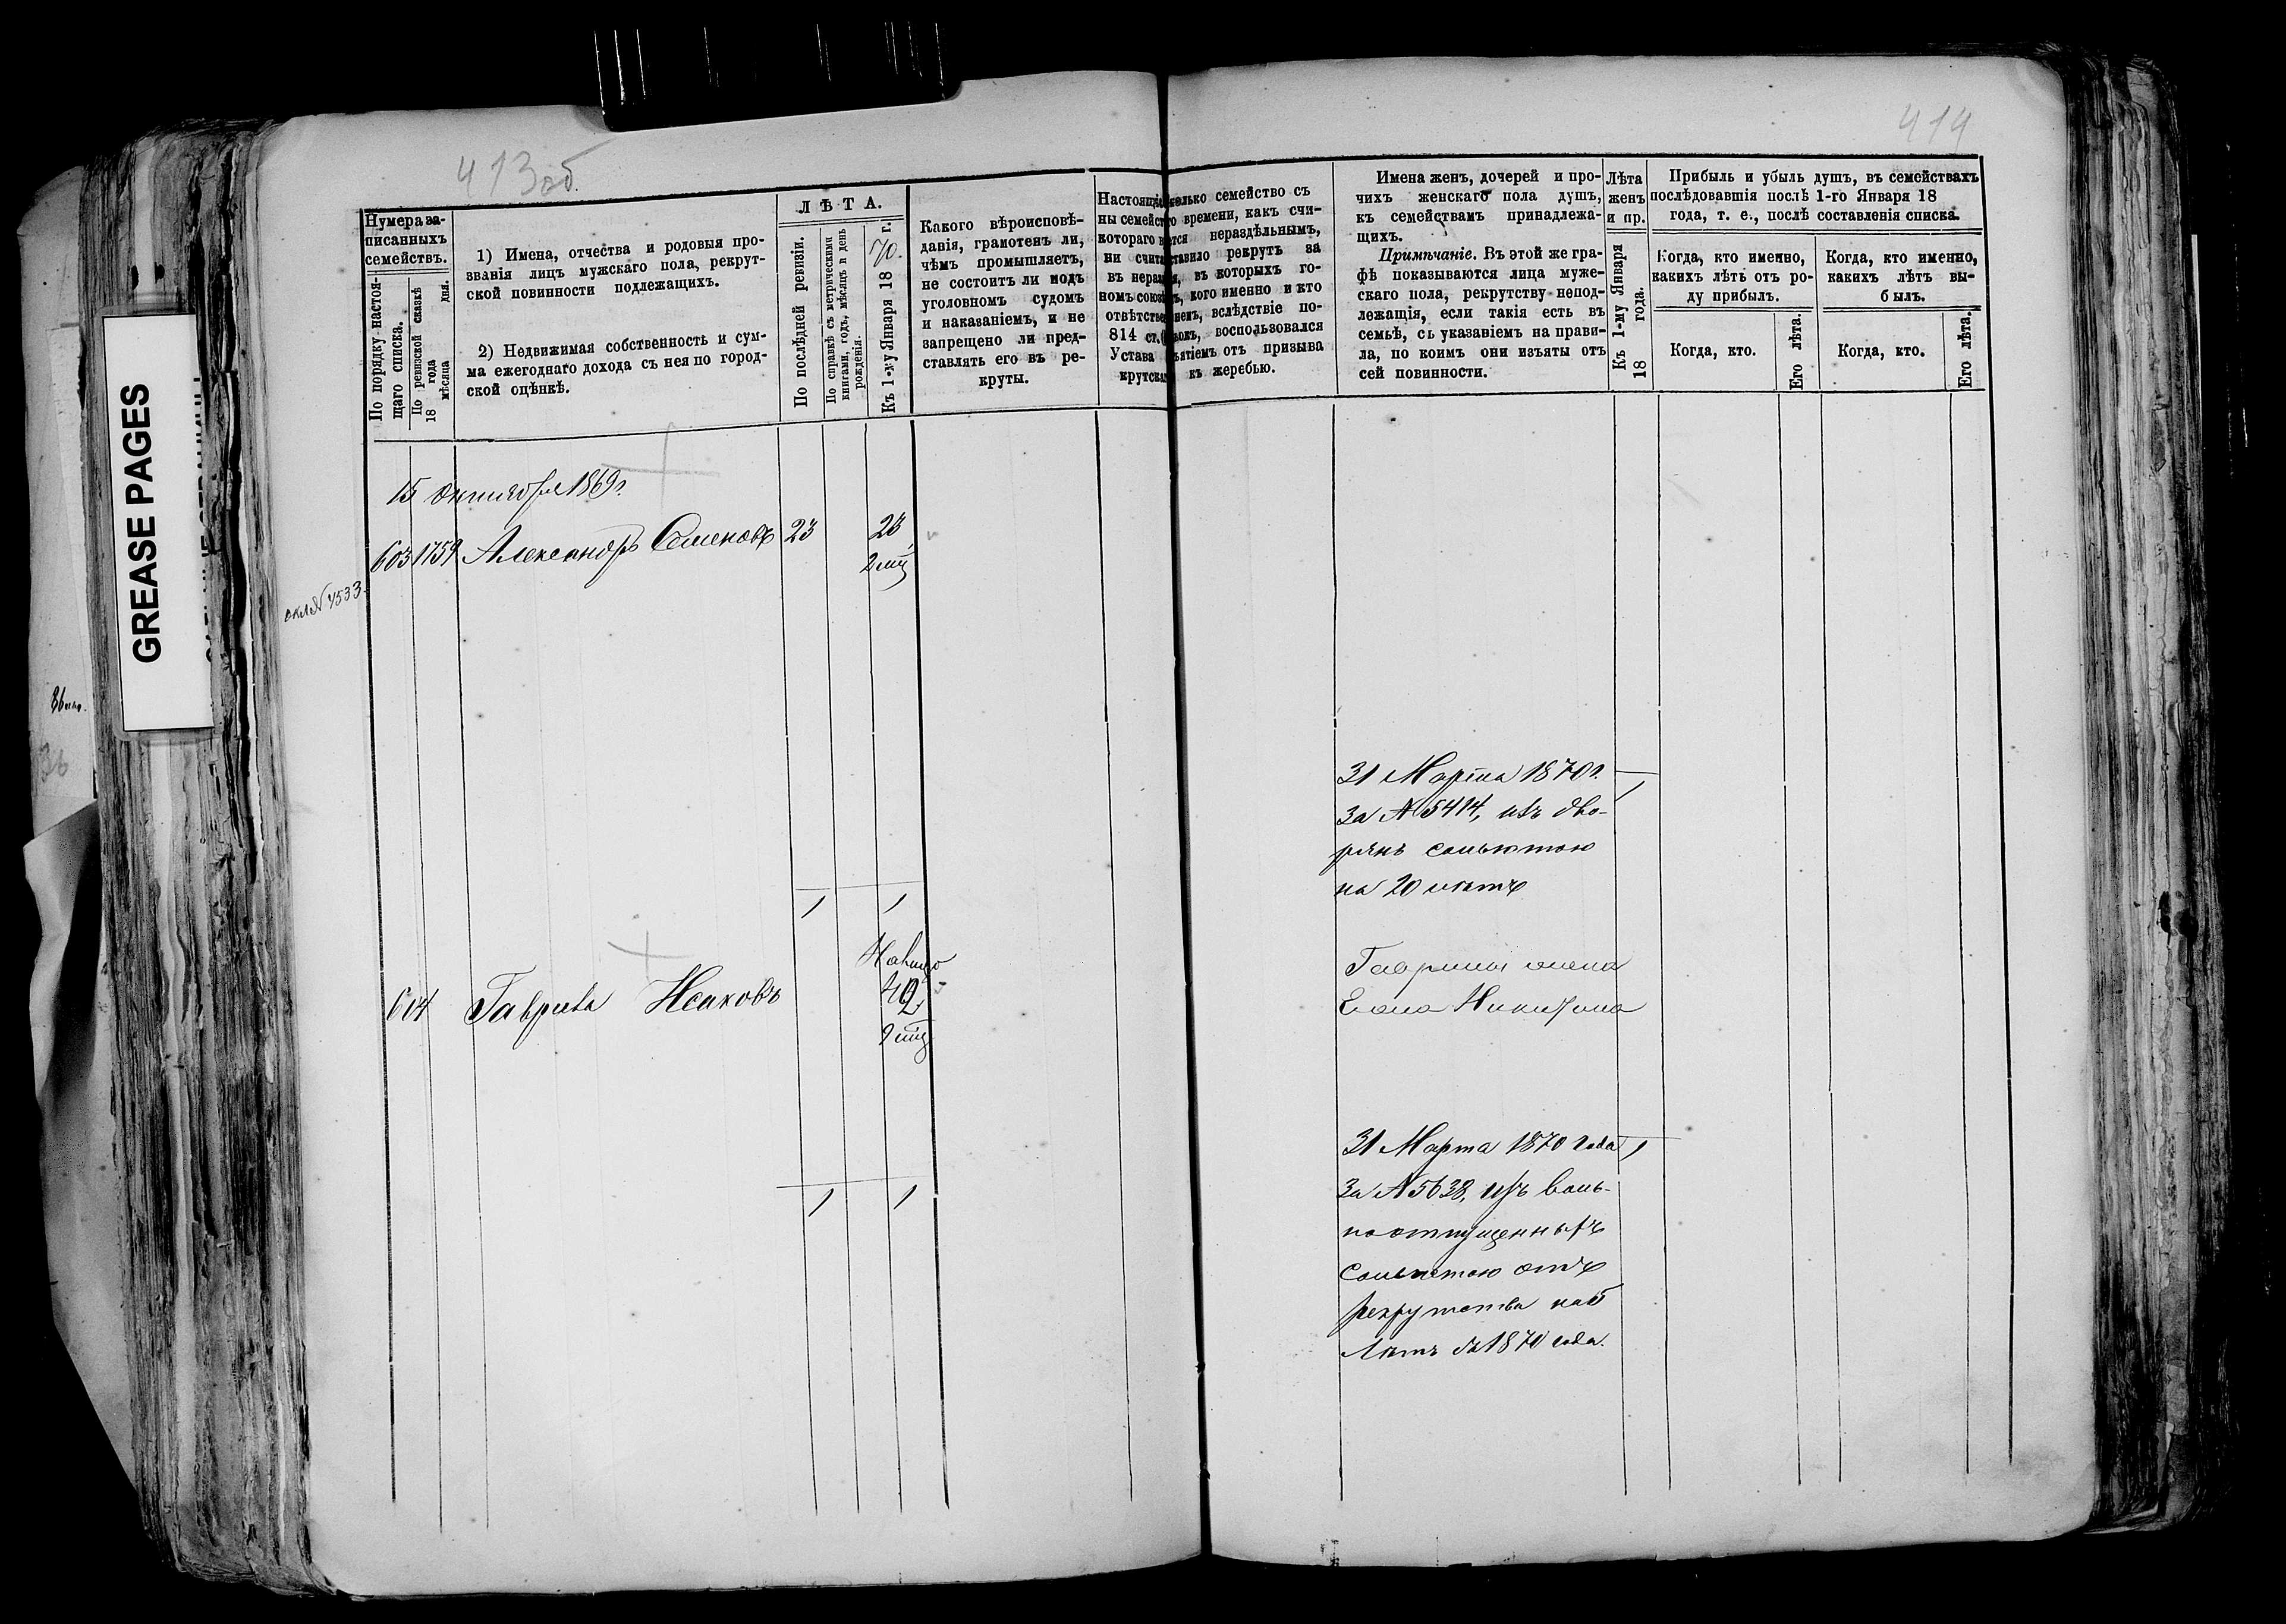 413об.
414
GREASE PAGES
Нумера за-
писанныхъ
семействъ.
По порядку настоя-
щаго списка.
По ревизской сказкѣ
18 года
мѣсяца дня.
1) Имена, отчества и родовыя про-
званія лицъ мужскаго пола, рекрут-
ской повинности подлежащихъ.
2) Недвижимая собственность и сум-
ма ежегоднаго дохода съ нея по город-
ской оцѣнкѣ.
ЛѢТА.
По послѣдней ревизіи.
По справкѣ съ метрическими
книгами, годъ, мѣсяцъ и день
рожденія.
Къ 1-му Января 1870. г.
Какого вѣроисповѣ-
данія, грамотенъ ли,
чѣмъ промышляетъ,
не состоитъ ли подъ
уголовномъ судомъ
и наказаніемъ, и не
запрещено ли пред-
ставлять его въ ре-
круты.
Настоящіе
ны семейст
котораго
ни счита
въ нераз
номъ союз
отвѣтстве
814 ст.
Устава
крутска
колько семейство съ
го времени, какъ счи-
вется нераздѣльнымъ,
ставило рекрутъ за
я, въ которыхъ го-
ъ, кого именно и кто
немъ, вслѣдствіе по-
вокъ, воспользовался
ъятіемъ отъ призыва
къ жеребью.
Имена женъ, дочерей и про-
чихъ женскаго пола душъ,
къ семействамъ принадлежа-
щихъ.
Примѣчаніе. Въ этой же гра-
фѣ показываются лица муже-
скаго пола, рекрутству непод-
лежащія, если такія есть въ
семьѣ, съ указаніемъ на прави-
ла, по коимъ они изъяты отъ
сей повинности.
Лѣта
женъ
и пр.
Къ 1-му Января
18 года.
Прибыль и убыль душъ, въ семействахъ
послѣдовавшія послѣ 1-го Января 18
года, т. е., послѣ составленія списка.
Когда, кто именно,
какихъ лѣтъ отъ ро-
ду прибылъ.
Когда, кто.
Его лѣта.
Когда, кто именно,
какихъ лѣтъ вы-
былъ.
Когда, кто.
Его лѣта.
15 октября 1869 г.
603 1759 Александръ Семеновъ 23 23
2 мц
№ 4533
31 Марта 1870 г.
За № 5414, изъ дво-
рянъ сольготою
на 20 лѣтъ
1 1 1
604 Гаврила Исаковъ
42
9 мц
Гаврилы жена
Елена Никифорова
31 Марта 1870 года 1
За № 5638, изъ воль-
ноотпущенныхъ
Сольготою отъ
рекрутства на 6
лѣтъ съ 1870 года.
1 1